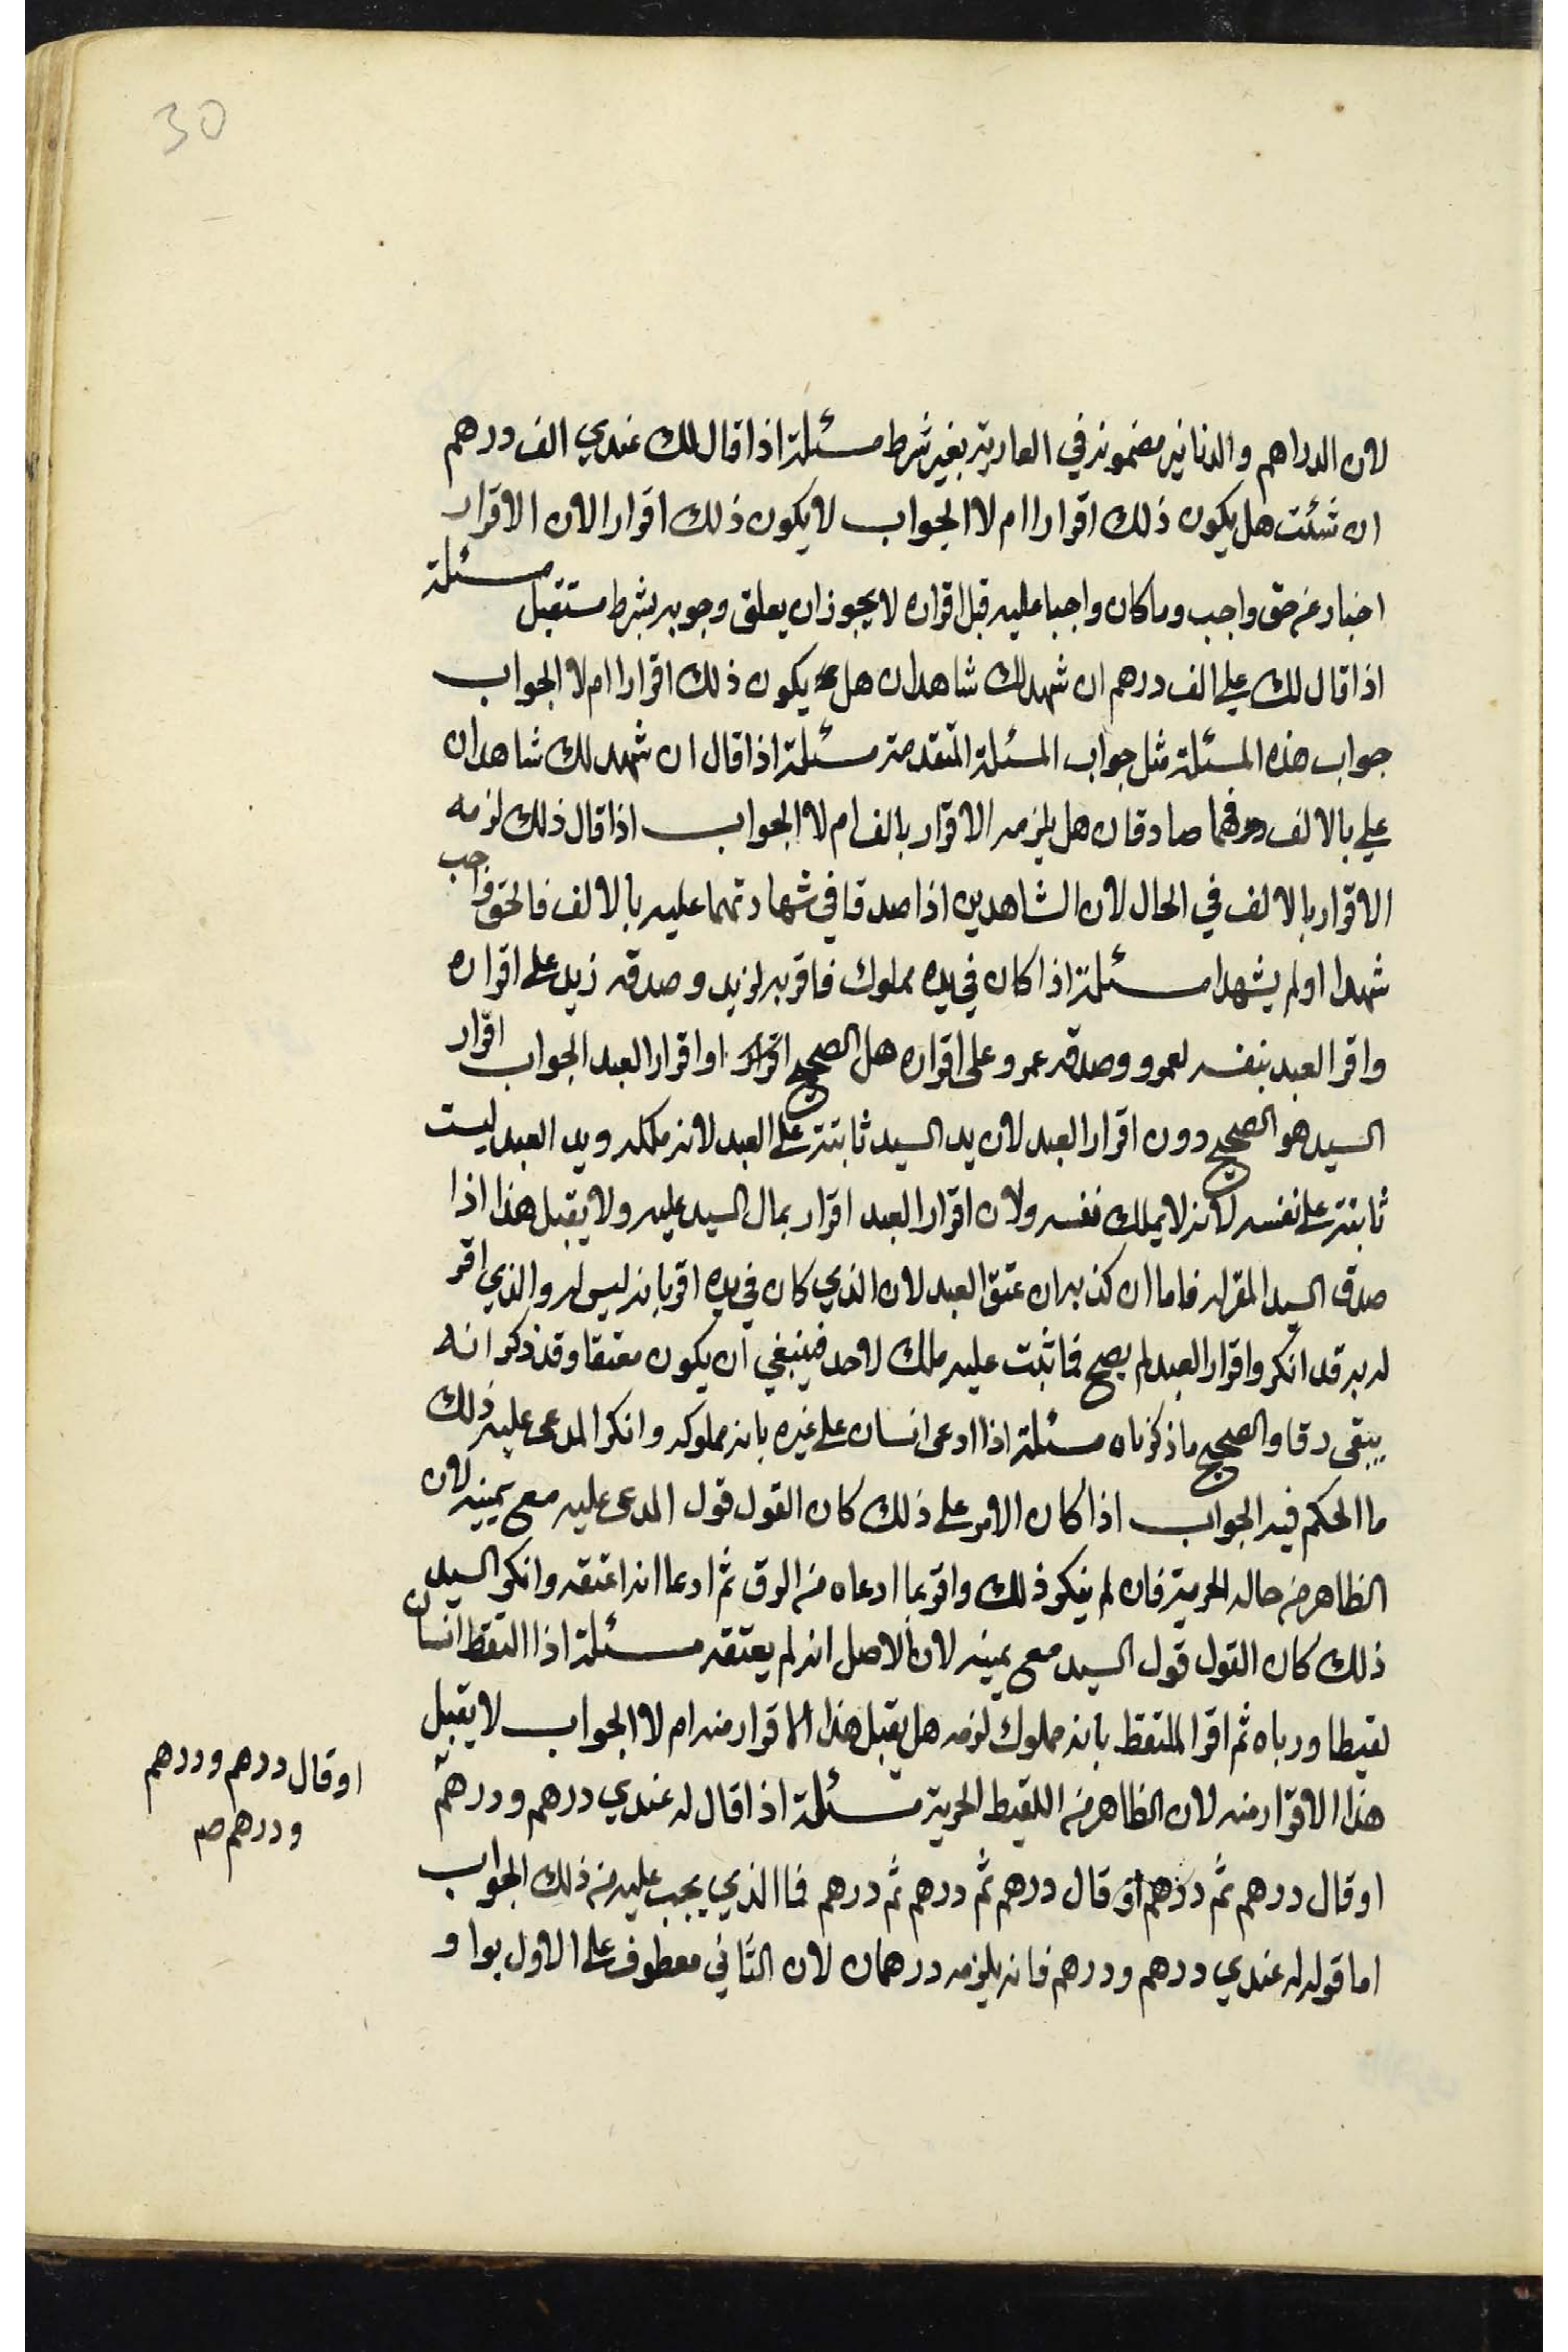 30
لان الدراهم والدنانير مضمونه في العارية بغير شرط مسئلة اذا قال لك عندي الف درهم
ان شئت هل يكون ذلك اقرارا ام لا الجواب لا يكون ذلك اقرارا لان الاقرار
اخبار عن حق واجب وما كان واجبا عليه قبل اقراره لا يجوز ان يعلق وجوبه بشرط مستقبل مسئلة
اذا قال لك علي الف درهم ان شهد لك شاهدان هل يكون ذلك اقرارا ام لا الجواب
جواب هذه المسئلة مثل جواب المسئلة المتقدمة مسئلة اذا قال ان شهد لك شاهدان
علي بالالف فهما صادقان هل يلزمه الاقرار بالف ام لا الجواب اذا قال ذلك لزمه
الاقرار بالالف في الحال لان الشاهدين اذا صدقا في شهادتهما عليه بالالف فالحق واجب
شهدا او لم يشهدا مسئلة اذا كان في يده مملوك فاقر به لزيد وصدقه زيد على اقراره
واقر العبد بنفسه لعمرو وصدقه عمرو على اقراره هل الصحيح اقراره او اقرار العبد الجواب اقرار
السيد هو الصحيح دون اقرار العبد لان يد السيد ثابتة على العبد لانه ملكه ويد العبد ليست
ثابتة على نفسه لانه لا يملك نفسه ولان اقرار العبد اقرار بمال السيد عليه ولا يقبل هذا اذا
صدق السيد المقر له فاما ان كذبه ان عتق العبد لان الذي كان في يده اقر بانه ليس له والذي اقر
له به قد انكر واقرار العبد لم يصح فما ثبت عليه ملك لاحد فينبغي ان يكون معتقا وقد ذكر انه
يبقى رقا والصحيح ما ذكرناه مسئلة اذا ادعى انسان على غيره بانه مملوكه وانكر المدعى عليه ذلك
ما الحكم فيه الجواب اذا كان الامر على ذلك كان القول قول المدعى عليه مع يمينه لان
الظاهر من حاله الحرية فان لم ينكر ذلك واقر بما ادعاه من الرق ثم ادعا انه اعتقه وانكر السيد
ذلك كان القول قول السيد مع يمينه لان الاصل انه لم يعتقه مسئلة اذا التقط انسان
لقيطا ورباه ثم اقر الملتقط بانه مملوك لزمه هل يقبل هذا الاقرار منه ام لا الجواب لا يقبل
هذا الاقرار منه لان الظاهر من اللقيط الحرية مسئلة اذا قال له عندي درهم ودرهم
او قال درهم ثم درهم او قال درهم ثم درهم ثم درهم فما الذي يجب عليه من ذلك الجواب
اما قوله له عندي درهم ودرهم فانه يلزمه درهمان لان الثاني معطوف على الاول بواو
او قال درهم ودرهم
ودرهم صح